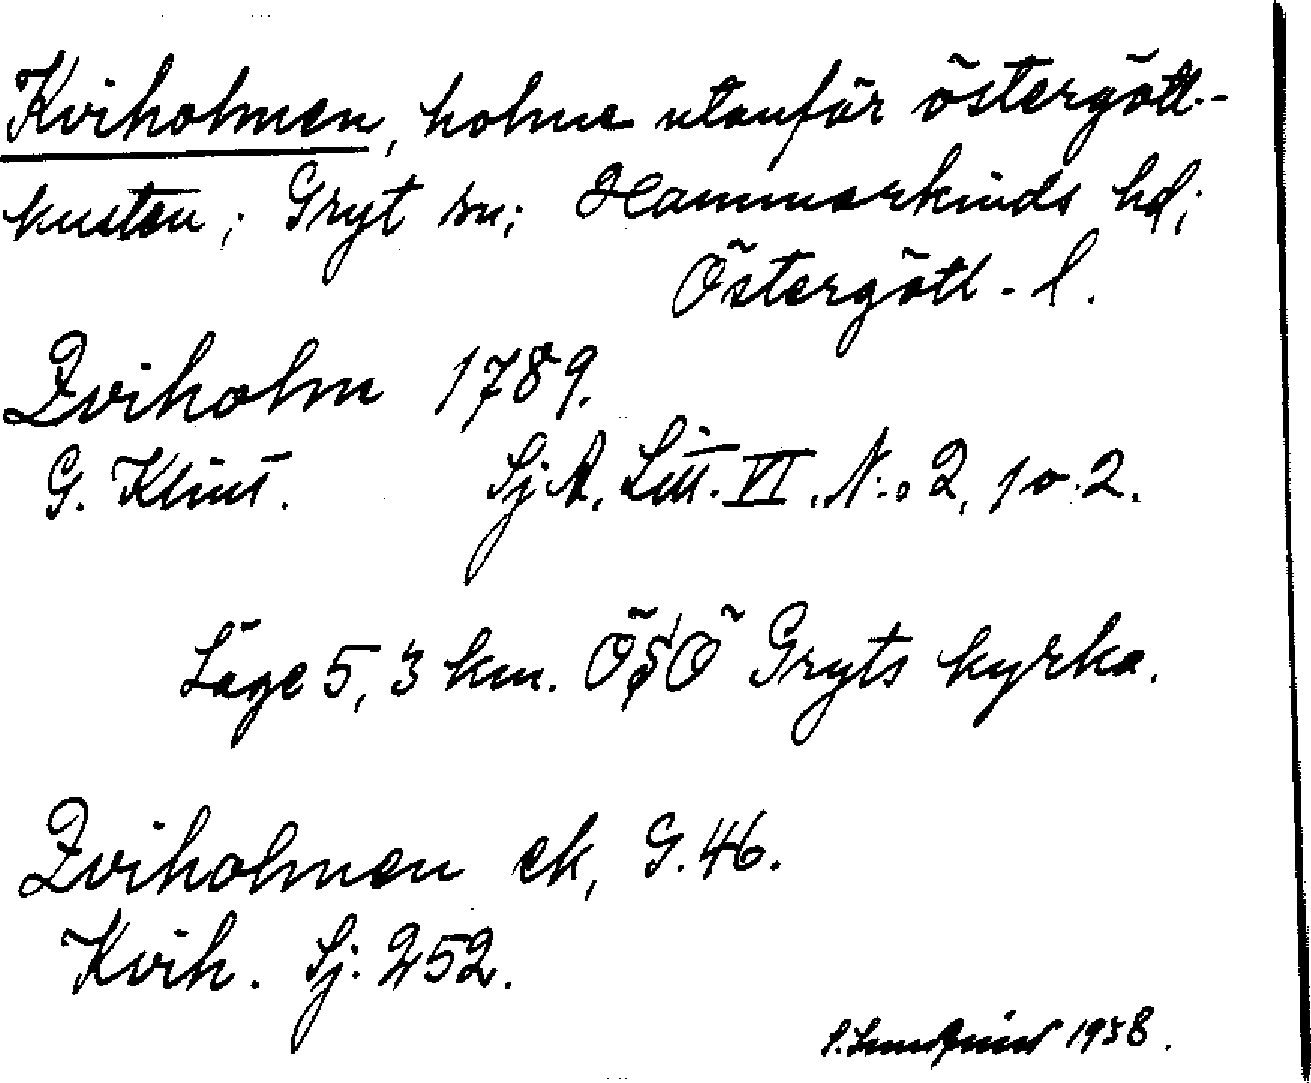 Kviholmen, holme utanför östergötl.-
kusten; Gryt sn; Hammarkinds hd;
Östergötl. l.
Qviholm 1789.
G. Klint. Sj A. Litt. VI. N:o 2, 1 o. 2.
Läge 5,3 km. ÖSÖ Gryts kyrka.
Qviholmen ek, G. 46.
Kvih. Sj. 252.
1938.